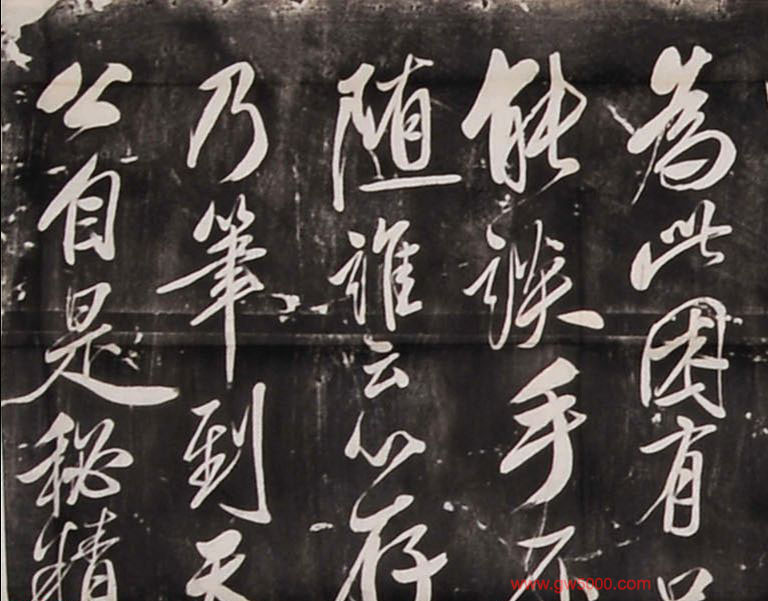 為此困有口
能談手不
随誰云心存
乃筆到天
公自是秘精
www.gw5000.com